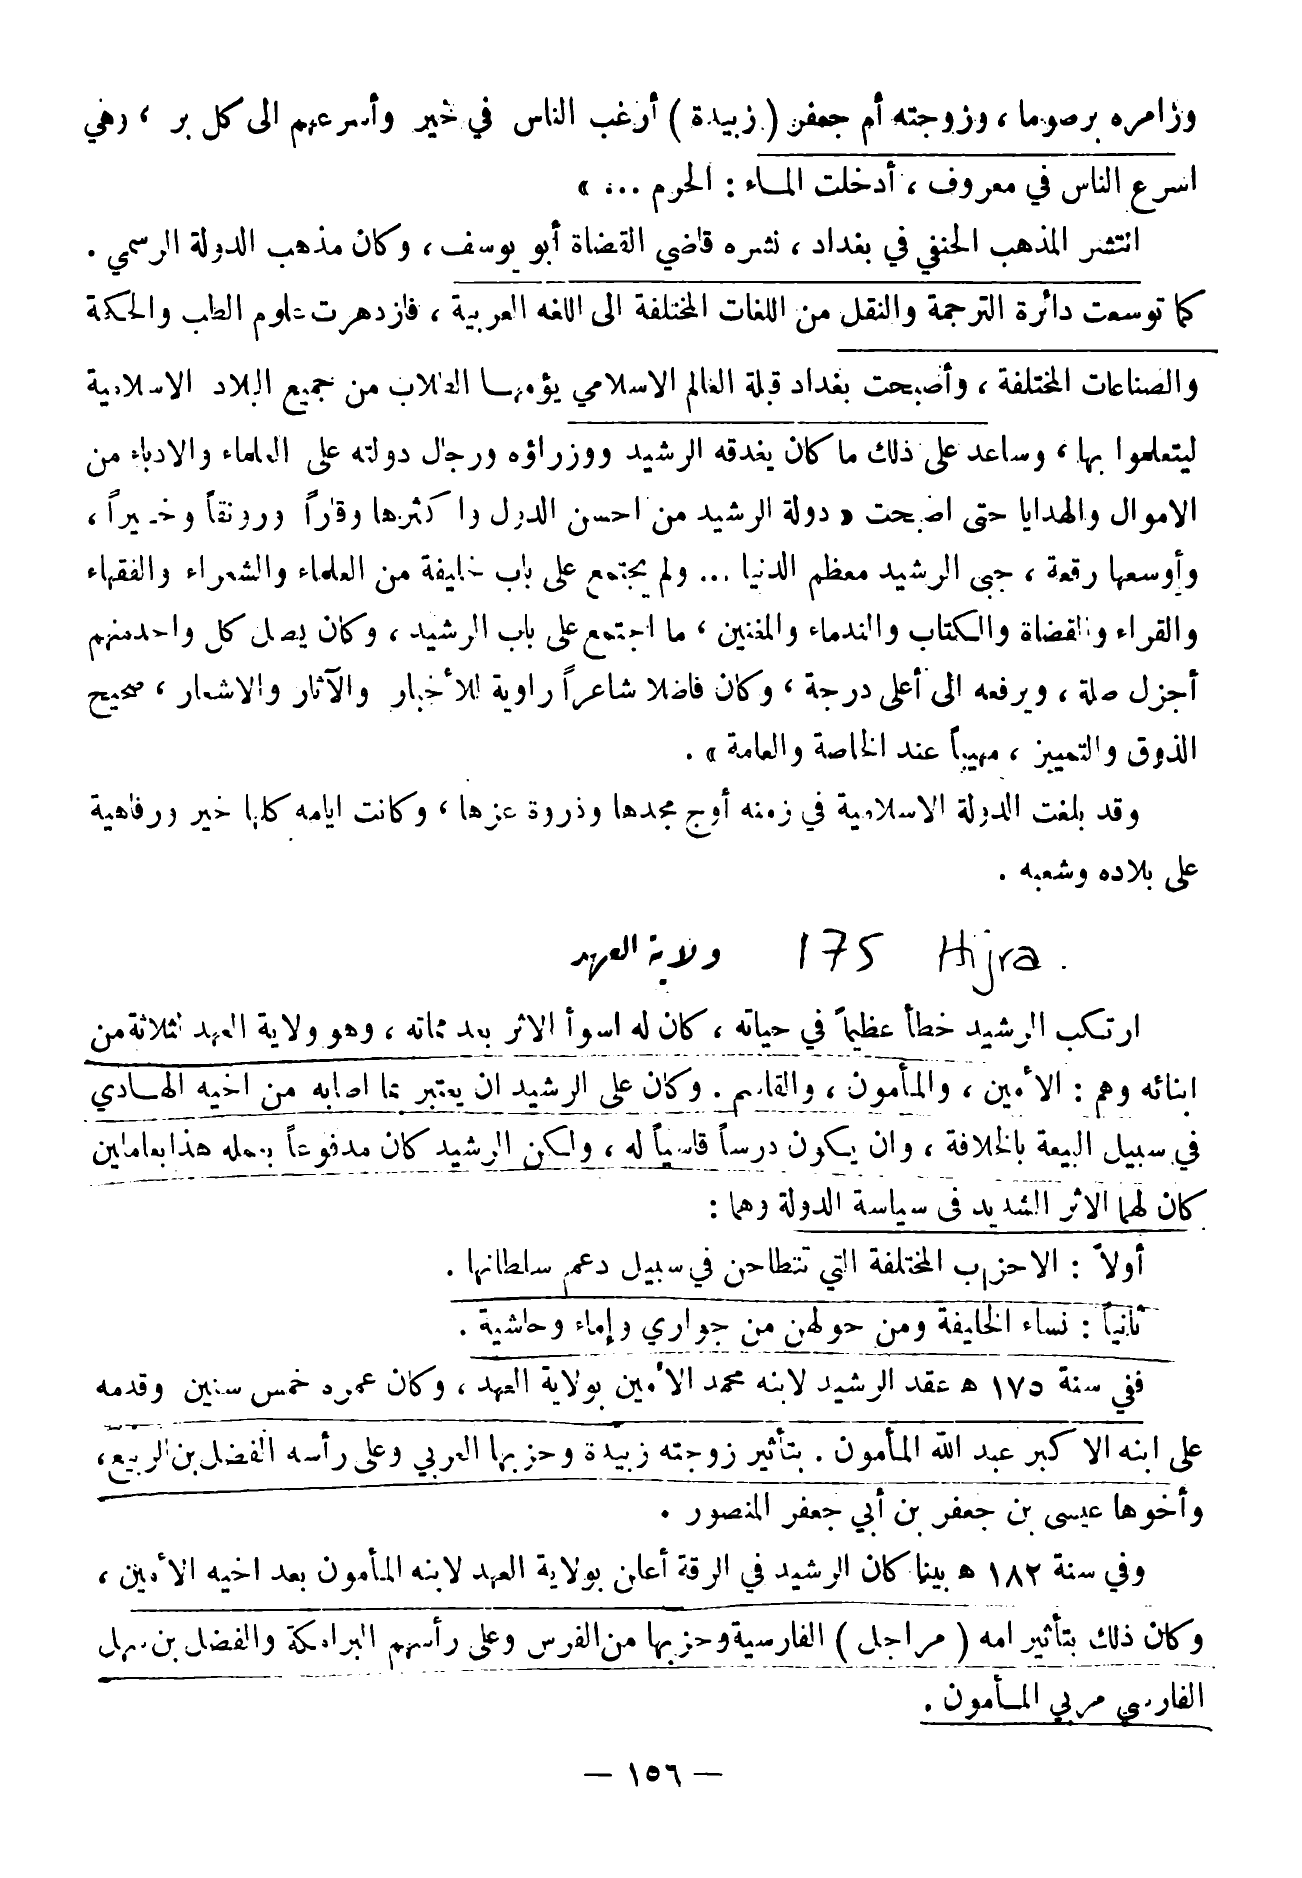 وزامره برصوما ، وزوجته أم جعفر ( زبيدة ) أرغب الناس في خير وأسرعهم الى كل بر ، وهي
اسرع الناس في معروف ، أدخلت الماء : الحرم ... »
انتشر المذهب الحنفي في بغداد ، نشره قاضي القضاة أبو يوسف ، وكان مذهب الدولة الرسمي .
كما توسعت دائرة الترجمة والنقل من اللغات المختلفة الى اللغه العربية ، فازدهرت علوم الطب والحكمة
والصناعات المختلفة ، وأصبحت بغداد قبلة العالم الاسلامي يؤمها الطلاب من جميع البلاد الاسلامية
ليتعلموا بها ، وساعد على ذلك ما كان يغدقه الرشيد ووزراؤه ورجال دولته على العلماء والادباء من
الاموال والهدايا حتى اصبحت « دولة الرشيد من احسن الدول واكثرها وقاراً ورونقاً وخيراً ،
وأوسعها رقعة ، جبى الرشيد معظم الدنيا ... ولم يجتمع على باب خليفة من العلماء والشعراء والفقهاء
والقراء والقضاة والكتاب والندماء والمغنين ، ما اجتمع على باب الرشيد ، وكان يصل كل واحد منهم
أجزل صلة ، ويرفعه الى أعلى درجة ، وكان فاضلا شاعراً راوية للأخبار والآثار والاشعار ، صحيح
الذوق والتمييز ، مهيباً عند الخاصة والعامة » .
وقد بلغت الدولة الاسلامية في زمنه أوج مجدها وذروة عزها ، وكانت ايامه كلها خير ورفاهية
على بلاده وشعبه .
ولاية العهد 175 Hijra .
ارتكب الرشيد خطأ عظيماً في حياته ، كان له اسوأ الاثر بعد مماته ، وهو ولاية العهد لثلاثة من
ابنائه وهم : الأمين ، والمأمون ، والقاسم . وكان على الرشيد ان يعتبر بما اصابه من اخيه الهادي
في سبيل البيعة بالخلافة ، وان يكون درساً قاسياً له ، ولكن الرشيد كان مدفوعاً بعمله هذا بعاملين
كان لهما الاثر الشديد في سياسة الدولة وهما :
أولاً : الاحزاب المختلفة التي تتطاحن في سبيل دعم سلطانها .
ثانياً : نساء الخليفة ومن حولهن من جواري وإماء وحاشية .
ففي سنة ١٧٥ هـ عقد الرشيد لابنه محمد الأمين بولاية العهد ، وكان عمره خمس سنين وقدمه
على ابنه الاكبر عبد الله المأمون . بتأثير زوجته زبيدة وحزبها العربي وعلى رأسه الفضل بن الربيع ،
وأخوها عيسى بن جعفر بن أبي جعفر المنصور .
وفي سنة ١٨٢ هـ بينا كان الرشيد في الرقة أعلن بولاية العهد لابنه المأمون بعد اخيه الأمين ،
وكان ذلك بتأثير امه ( مراجل ) الفارسية وحزبها من الفرس وعلى رأسهم البرامكة والفضل بن سهل
الفارسي مربي المأمون .
— ١٥٦ —